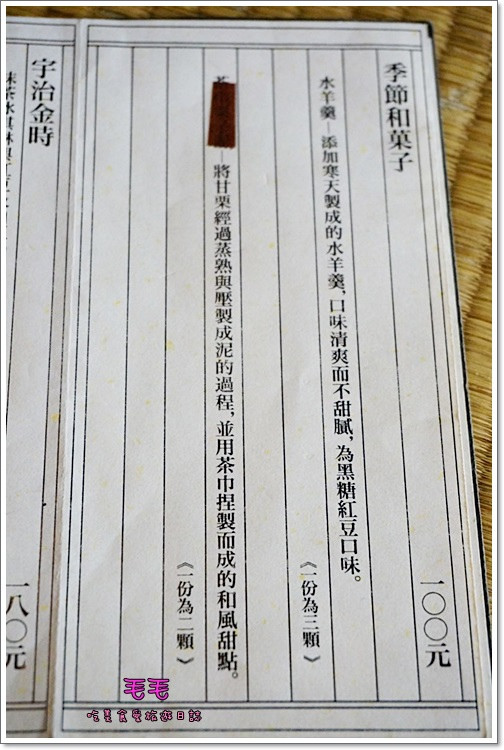 季節和菓子 一〇〇元
水羊羹—添加寒天製成的水羊羹,口味清爽而不甜膩,為黑糖紅豆口味。
《一份為三顆》
—將甘栗經過蒸熟與壓製成泥的過程,並用茶巾捏製而成的和風甜點。
《一份為二顆》
宇治金時 一八〇元
抹茶冰淇淋與
毛毛
吃美食愛旅遊日誌